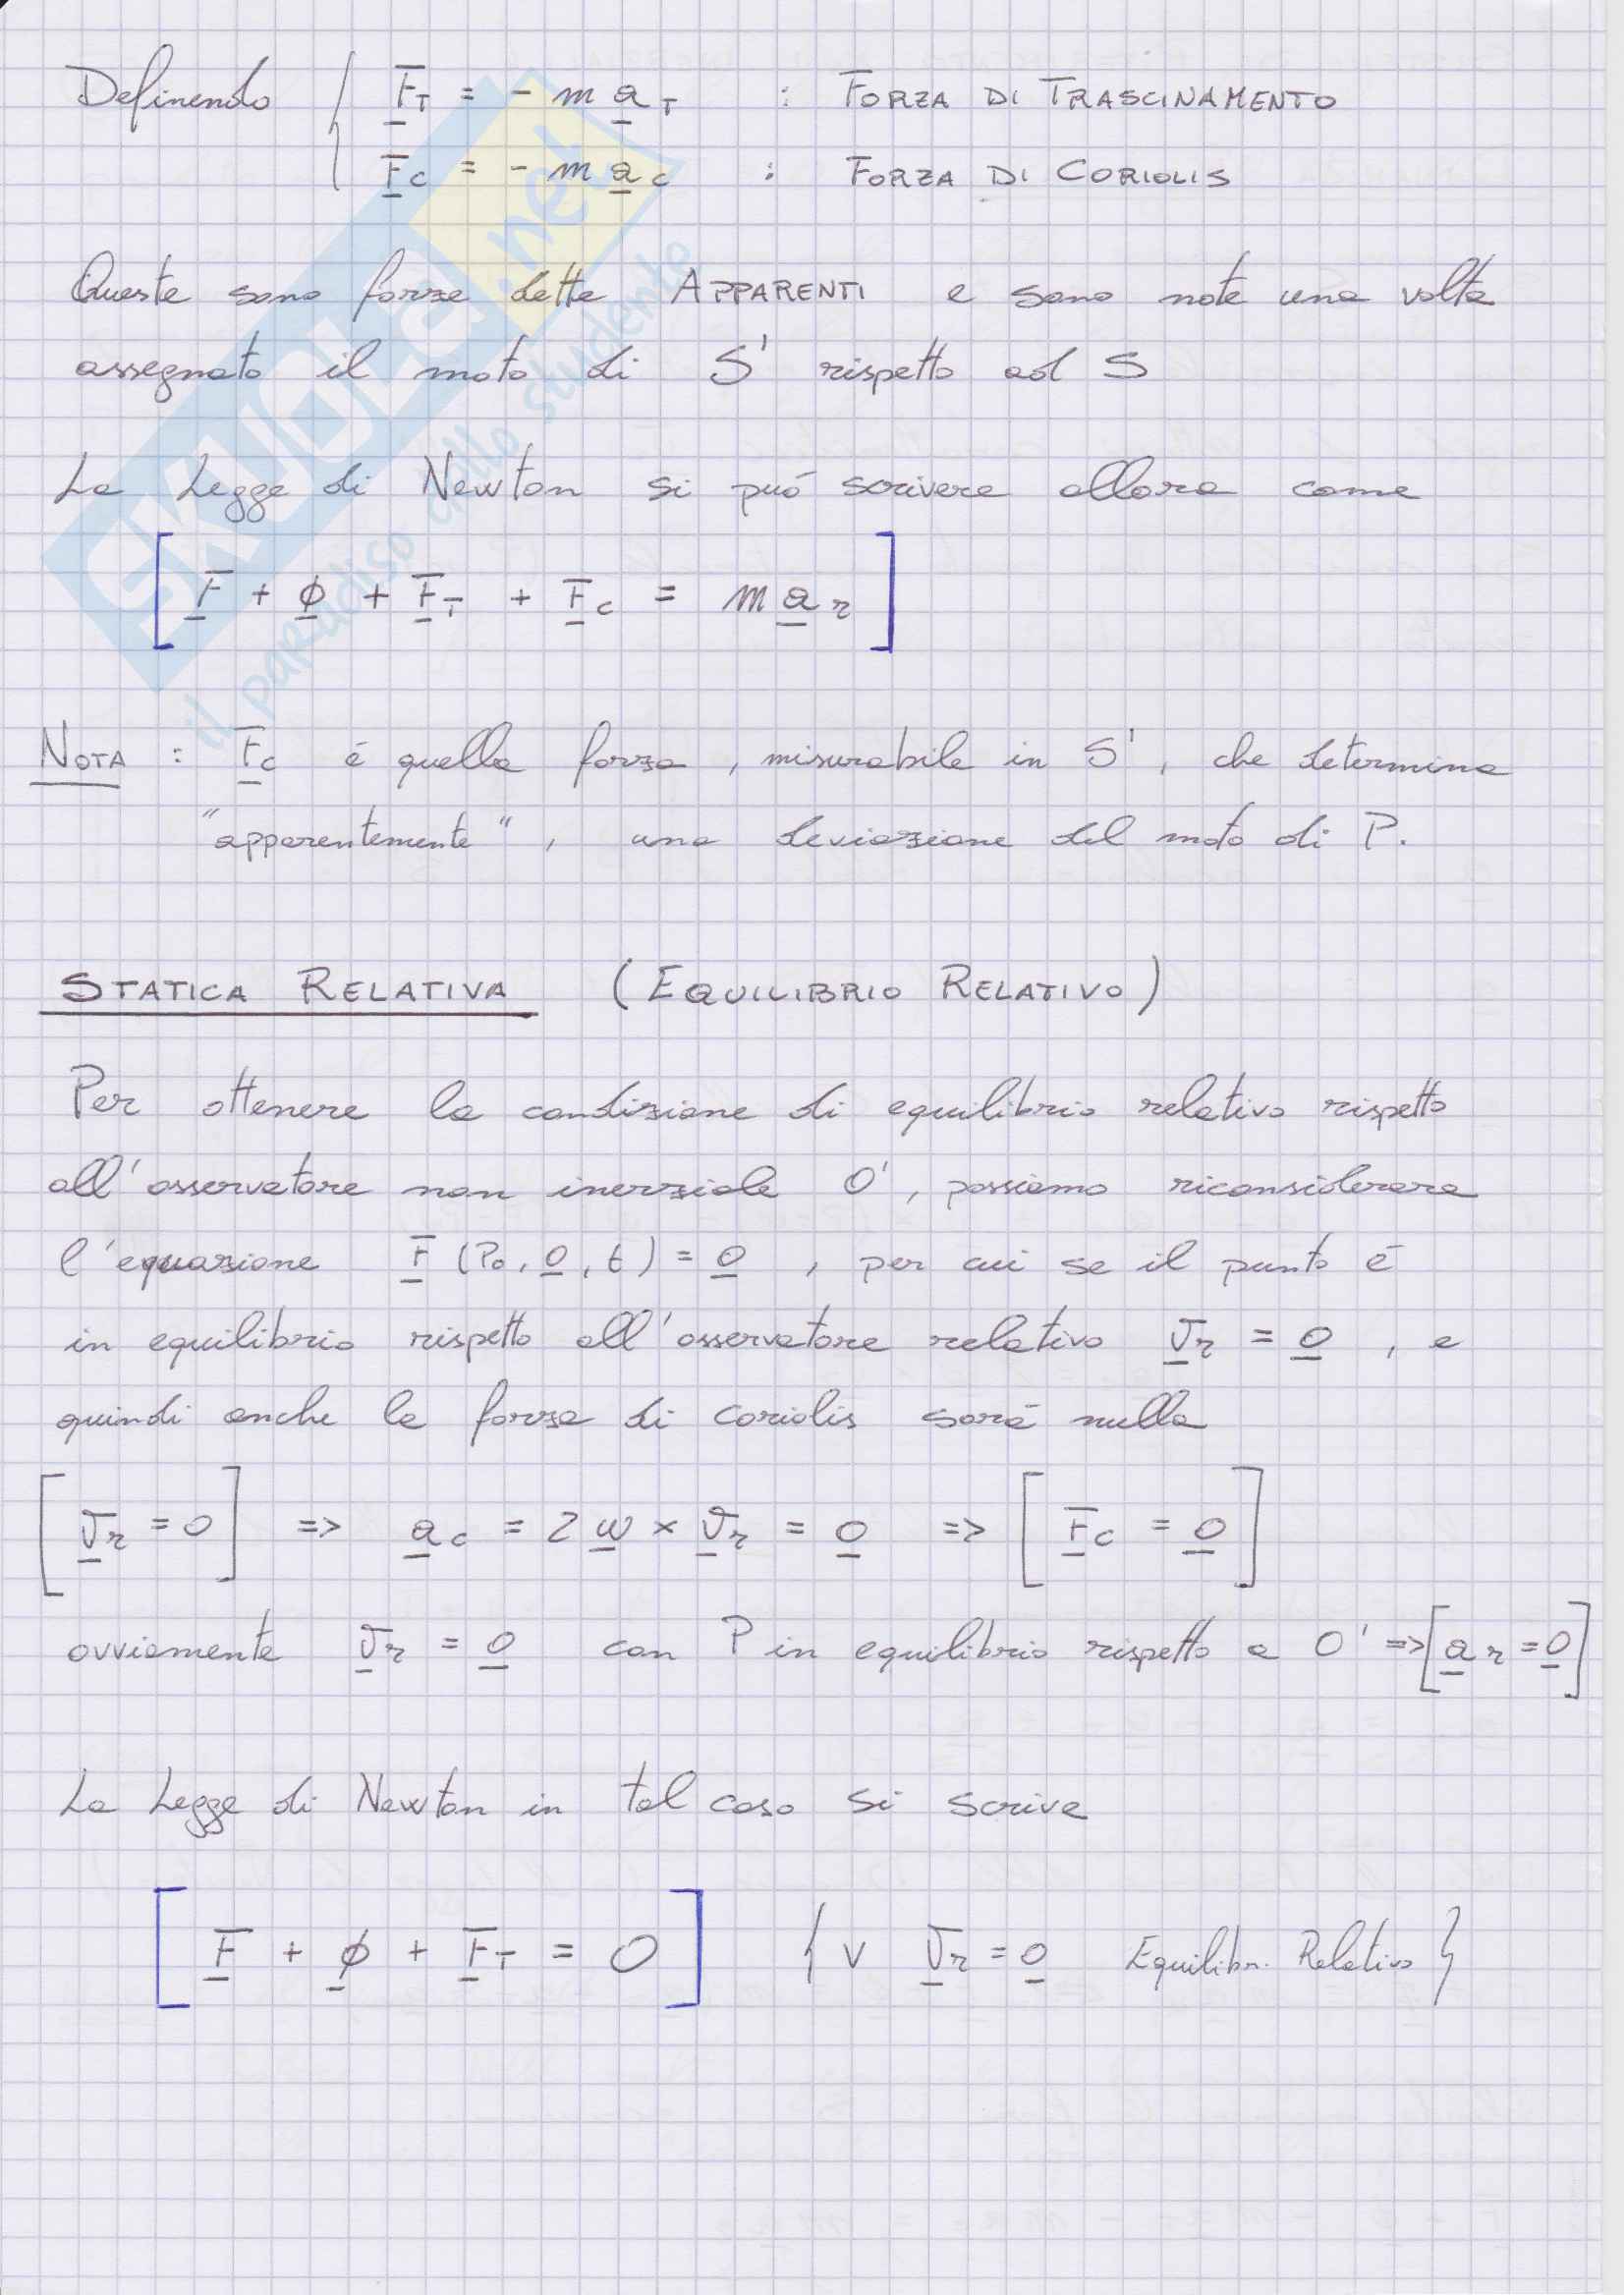 Definendo { F_T = - m a_T : FORZA DI TRASCINAMENTO
F_C = - m a_C : FORZA DI CORIOLIS
Queste sono forze dette APPARENTI e sono note una volta
assegnato il moto di S' rispetto ad S
La Legge di Newton si può scrivere allora come
[ F + ϕ + F_T + F_C = m a_r ]
NOTA : F_C é quella forza, misurabile in S', che determina
"apparentemente", una deviazione del moto di P.
STATICA RELATIVA (EQUILIBRIO RELATIVO)
Per ottenere la condizione di equilibrio relativo rispetto
all'osservatore non inerziale O', possiamo riconsiderare
l'equazione F (P_0, 0, t) = 0 , per cui se il punto é
in equilibrio rispetto all'osservatore relativo v_r = 0 , e
quindi anche la forza di coriolis sará nulla
[ v_r = 0 ] => a_c = 2 ω × v_r = 0 => [ F_C = 0 ]
ovviamente v_r = 0 con P in equilibrio rispetto a O' => [ a_r = 0 ]
La Legge di Newton in tal caso si scrive
[ F + ϕ + F_T = 0 ] { V v_r = 0 Equilibr. Relativo }
SKUOLA.net
il paradiso dello studente